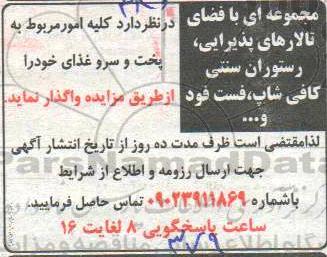 مجموعه ای با فضای
تالارهای پذیرایی،
رستوران سنتی
کافی شاپ،فست فود
و...
درنظردارد کلیه امورمربوط به
پخت و سرو غذای خودرا
ازطریق مزایده واگذار نماید.
لذامقتضی است ظرف مدت ده روز از تاریخ انتشار آگهی
جهت ارسال رزومه و اطلاع از شرایط
باشماره ۰۹۰۲۳۹۱۱۸۶۹ تماس حاصل فرمایید.
ساعت پاسخگویی ۸ لغایت ۱۶
۳۷۹